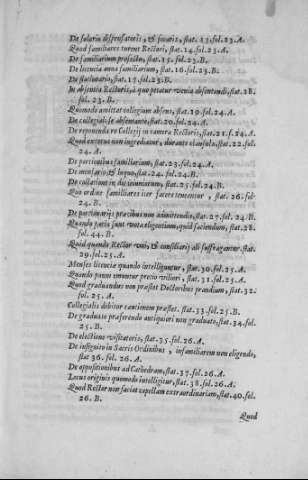 De salario dispensatoris, & socaris, stat. 13. fol. 23. A.
Quod familiares iurent Rectori, stat. 14. fol. 23. A.
De familiarium profectu, stat. 15. fol. 23. B.
De licentia anna familiarium, stat. 16. fol. 23. B.
De stationario, stat. 17. fol. 23. B.
In absentia Rectoris, à quo petatur venia absentandi, stat. 18.
fol. 23. B.
Quomodo amittat collegium absens, stat. 19. fol. 24. A.
De collegialis se absentante, stat. 20. fol. 24. A.
De reponenda re Collegij in camera Rectoris, stat. 21. f. 24. A.
Quod extra eus non ingrediatur, durante clausula, stat. 22. fol.
24. A.
De portionibus familiarium, stat. 23. fol. 24. A.
De mensario, & signo, stat. 24. fol. 24. B.
De collatione in die ieiuniorum, stat. 25. fol. 24. B.
Quo ordine familiares iter facere teneantur, stat. 26. fol.
24. B.
De portionarijs precibus non admittendis, stat. 27. fol. 24. B.
Quando paria sunt vota eligentium, quid faciendum, stat. 28.
fol. 44. B.
Quid quando Rector vni, & consiliarij alij suffragantur. stat.
29. fol. 25. A.
Menses licentiæ quando intelliguntur, stat. 30. fol. 25. A.
Quando panes emuntur precio viliori, stat. 31. fol. 25. A.
Quod graduandus non præstet Doctoribus prandium, stat. 32.
fol. 25. A.
Collegialis debitor cautionem præstet. stat. 33. fol. 25. B.
De graduato præferendo antiquiori non graduato, stat. 34. fol.
25. B.
De electione visitatoris, stat. 35. fol. 26. A.
De insignito in Sacris Ordinibus, in familiarem non eligendo,
stat. 36. fol. 26. A.
De oppositionibus ad Cathedram, stat. 37. fol. 26. A.
Locus originis quomodo intelligitur, stat. 38. fol. 26. A.
Quod Rector non faciat capellam extraordinariam, stat. 40. fol.
26. B.
Quod